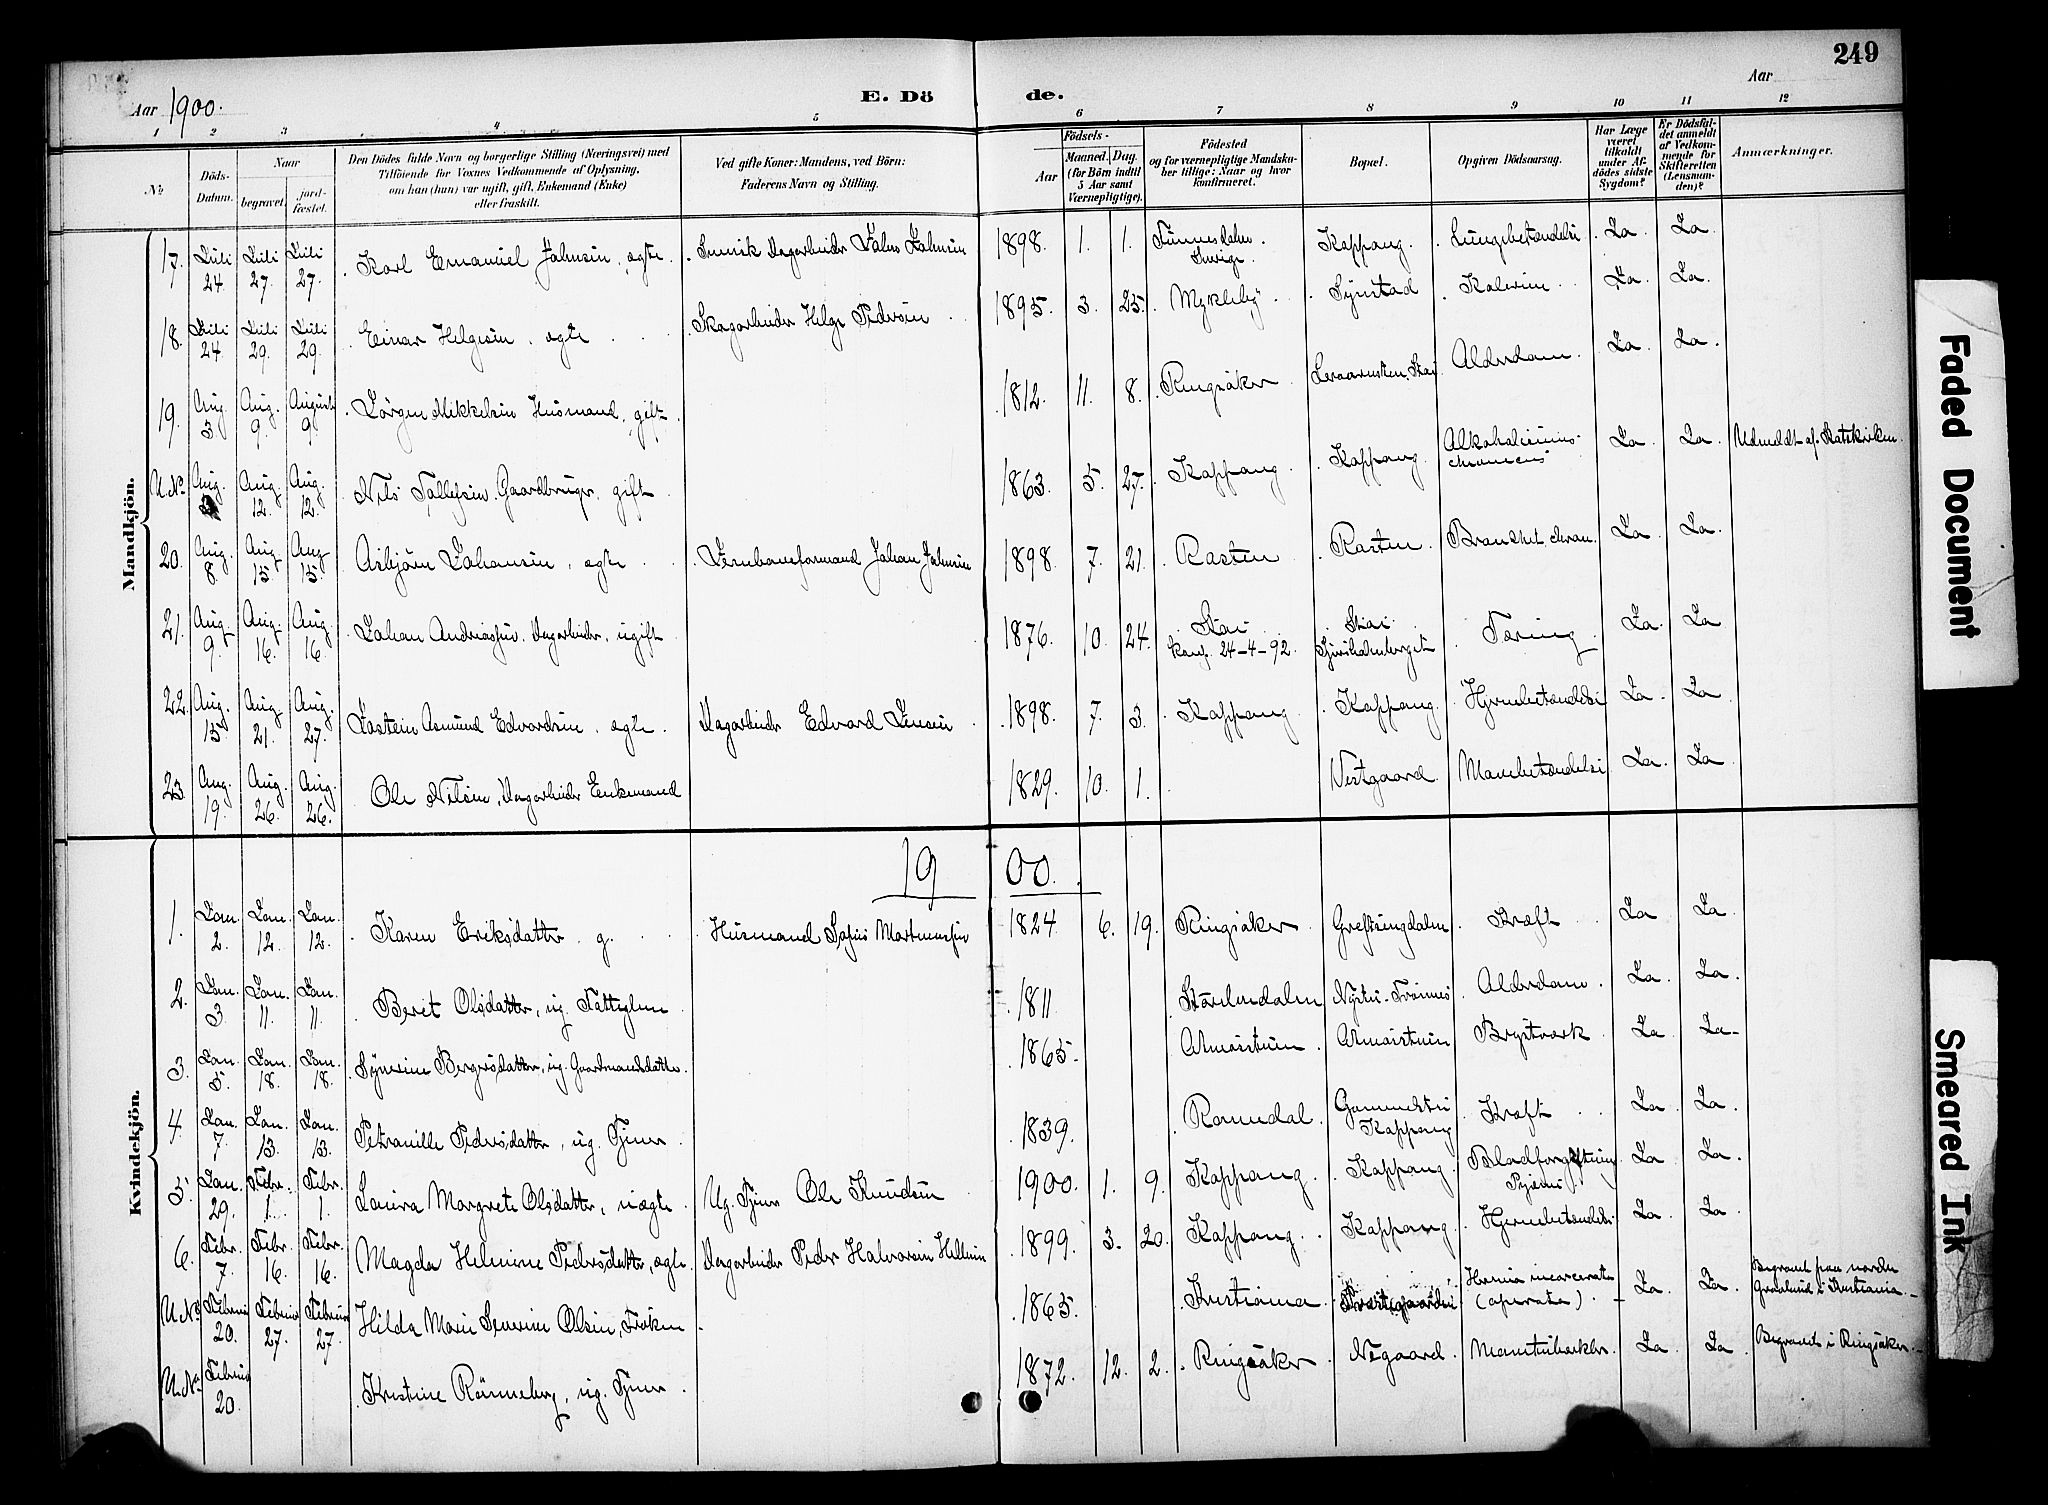 249
Aar 1900.
E. Dö
de.
Aar
1 2 3 4 5 6 7 8 9 10 11 12
No.
Döds-Datum.
Naar
begravet.
jord-fæstet.
Den Dödes fulde Navn og borgerlige Stilling (Næringsvei) med
Tilföiende for Voxnes Vedkommende af Oplysning,
om han (hun) var ugift, gift, Enkemand (Enke)
eller fraskilt.
Ved gifte Koner: Mandens, ved Börn:
Faderens Navn og Stilling.
Födsels-
Aar
Maaned. Dag.
(for Börn indtil
5 Aar samt
Værnepligtige).
Födested
og for værnepligtige Mandska-
ber tillige: Naar og hvor
konfirmeret.
Bopæl.
Opgiven Dödsaarsag.
Har Læge
været
tilkaldt
under Af-
dödes sidste
Sygdom?
Er Dödsfal-
det anmeldt
af Vedkom-
mende for
Skifteretten
(Lensman-
den)?
Anmærkninger.
Mandkjön.
17. Juli 24. Juli 27. Juli 27. Karl Emanuel Johnsen, ægte. Svensk Dagarbeider Johns Johnsen 1898. 1. 1. Sverige. Koppang. Lungebetændelse Ja. Ja.
18. Juli 24. Juli 29. Juli 29. Einar Helgesen, ægte Skogarbeider Helge Pedersen 1895. 3. 25. Mykleby Synstad Kolerine Ja. Ja.
19. Aug. 3. Aug. 9. August 9. Jörgen Mikkelsen Husmand, gift. 1812. 11. 8. Ringsaker Stai Alderdom. Ja. Ja.
U.No. Aug. Aug. 12. Aug. 12. Nils Tollefsen, Gaardbruger, gift 1863. 5. 27. Koppang. Koppang. Alkoholismus chronicus Ja. Ja. Udmeldt af Statskirken.
20. Aug. 8. Aug. 15. Aug 15. Asbjörn Johansen, ægte Jernbaneformand Johan Johnsen 1898. 7. 21. Rasten Rasten. Bronchit. chron. Ja. Ja.
21. Aug. 9. Aug. 16. Aug. 16. Johan Andreassen, Dagarbeider, ugift 1876. 10. 24. Stai konf. 24-4-92. Stai Tæring Ja. Ja
22. Aug. 15. Aug. 21. Aug. 27. Jostein Asmund Edvardsen, ægte. Dagarbeider Edvard Jensen 1898. 7. 3. Koppang. Koppang. Hjernebetændelse Ja. Ja
23. Aug. 19. Aug. 26. Aug. 26. Ole Nilsen, Dagarbeider Enkemand 1829. 10. 1. Vestgaard Mavebetændelse Ja. Ja
1900.
Kvindekjön.
1. Jan. 2. Jan. 12. Jan. 12. Karen Eriksdatter. g. Husmand Martinussen 1824 6. 19. Ringsaker Kræft Ja Ja.
2. Jan. 3. Jan. 11. Jan. 11. Beret Olsdatter, ug. Fattiglem 1811 Storelvdalen Alderdom Ja. Ja.
3. Jan. 5. Jan. 18. Jan. 18. Synerine Bergersdatter, ug. Gaardmandsdatter. 1865. Atneöstuen Atneöstuen Brystværk Ja Ja-
4. Jan. 7. Jan. 13. Jan. 13. Petronille Pedersdatter, ug. Tjener 1839. Romedal Koppang Kræft Ja Ja.
5. Jan. 29. Febr. 1. Febr. 1. Laura Margrete Olsdatter, uægte. Ug. Tjener Ole Knudsen 1900. 1. 9. Koppang. Koppang. Blodforgiftning Pyæmi. Ja Ja.
6. Febr. 7. Febr. 16. Febr. 16. Magda Helmine Pedersdatter, ægte. Dagarbeider Peder Halvorsen 1899. 3. 20. Koppang. Koppang Hjernebetændelse Ja. Ja
U.No. Februar 20. Februar 27. Februar 27. Hilda Marie Severine Olsen, Fröken 1865. Kristiania Prestegaarden Hernia incarcerata (operata) Ja Ja. Begravet paa nordre Gravlund i Kristiania.
U.No. Februar 20. Kristine Rönneberg, ug. Tjener 1872. 12. 2. Ringsaker Negaard. Ja Ja Begravet i Ringsaker.
Faded Document
Smeared Ink